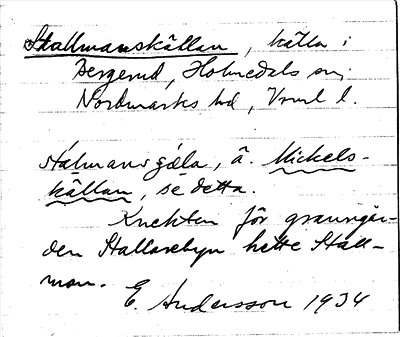 Stallmanskällan, källa i
Bergerud, Holmedals sn,
Nordmarks hd, Vrml l.
stálmansɡæla, ä. Mickels-
källan, se detta.
Knekten för granngår-
den Stallarebyn hette Stall-
man.
E. Andersson 1934